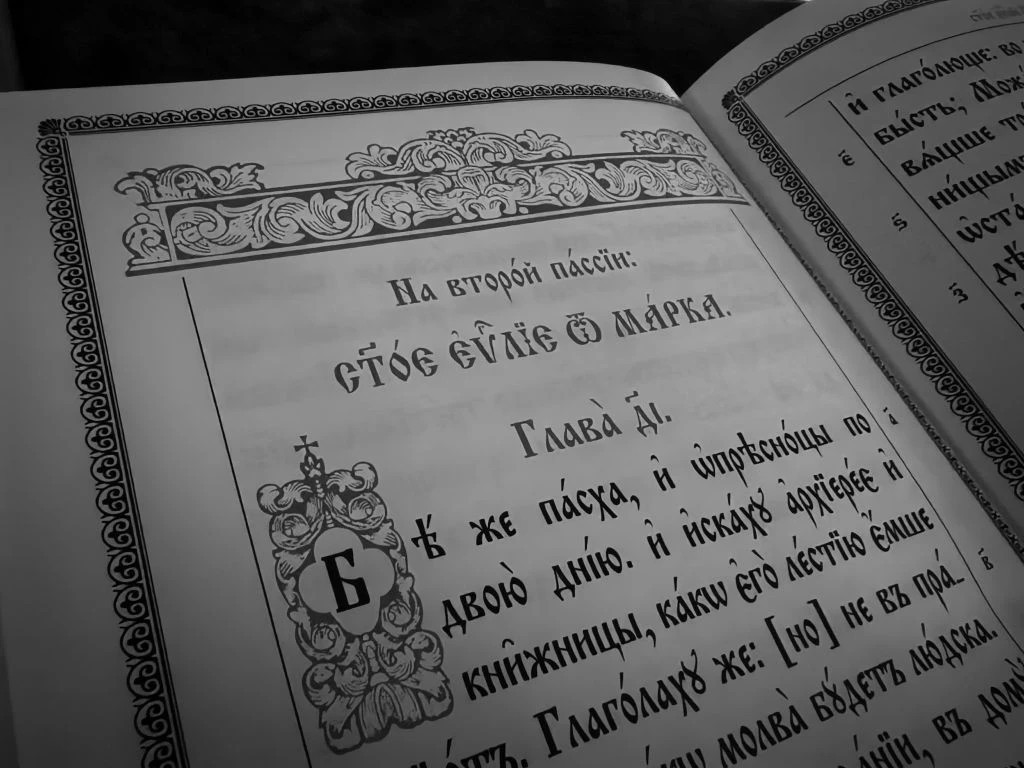 На второ́й па́ссїи:
ст҃о́е є҆ѵⷢ҇лїе ѿ ма́рка.
Глава̀ д҃і.
Бѣ́ же па́сха, и҆ ѡ҆прѣсно́цы по
двою̀ дні́ю. и҆ и҆ска́хꙋ а҆рхїере́є и҆
кни́жницы, ка́кѡ є҆го̀ ле́стїю є҆́мше
Глаго́лахꙋ же: [но] не въ пра́-
молва̀ бꙋ́детъ лю́дска.
въ
а҃
в҃
и҆ глаго́люще: во
бы́сть;
ва́щше
ни́щымъ
є҃
ѕ҃
з҃